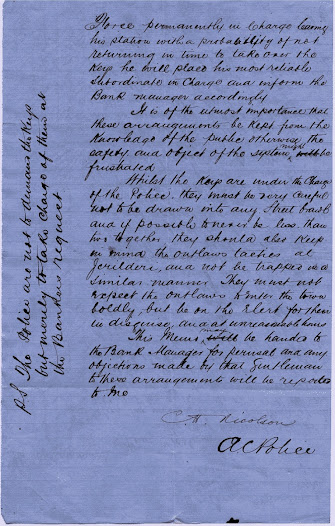 Police permanently in Charge leaving
his station with a probability of not
returning in time to take over the
Keys he will place his most reliable
subordinate in Charge and inform the
Bank manager accordingly
It is of the utmost importance that
these arrangements be kept from the
Knowledge of the public otherwise the
safety and object of the system might be
frustrated
Whilst the Keys are under the Charge
of the Police, they must be very careful
not to be drawn into any Street brawl
and if possible to never be less than
two together, they should also keep
in mind the outlaws tactics at
Jerilderie, and not be trapped in a
similar manner. They must not
expect the outlaws to enter the town
boldly, but be on the Alert for them
in disguise, and at unreasonable hours
This Memo, will be handed to
the Bank Manager for perusal and any
objections made by that Gentleman
to these arrangements will be reported
to me
C. H. Nicolson
A C Police
P.S The Police are not to demand the Keys
but merely to take Charge of them at
the Bankers request